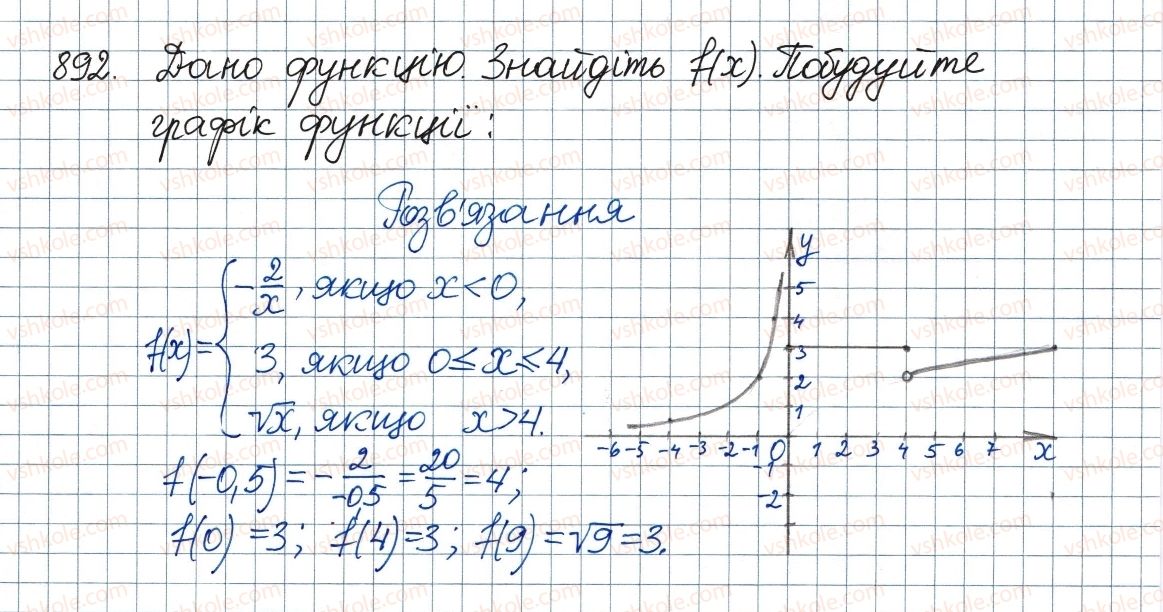 892. Дано функцію. Знайдіть f(x). Побудуйте
графік функції:
Розв'язання
f(x) = { -2/x, якщо x < 0,
3, якщо 0 ≤ x ≤ 4,
√x, якщо x > 4.
f(-0,5) = -2/-0,5 = 20/5 = 4;
f(0) = 3; f(4) = 3; f(9) = √9 = 3.
y
5
4
3
2
1
-6 -5 -4 -3 -2 -1 0 1 2 3 4 5 6 7 x
-1
-2
vshkole.com